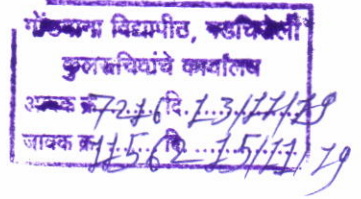 गोंडवाना विद्यापीठ, गडचिरोली
कुलसचिवांचे कार्यालय
आवक क्र. 7216 दि. 13/11/19
जावक क्र. 11562 दि. 15/11/19